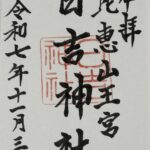 奉拝
恵山王宮
日吉神社
令和七年十一月三